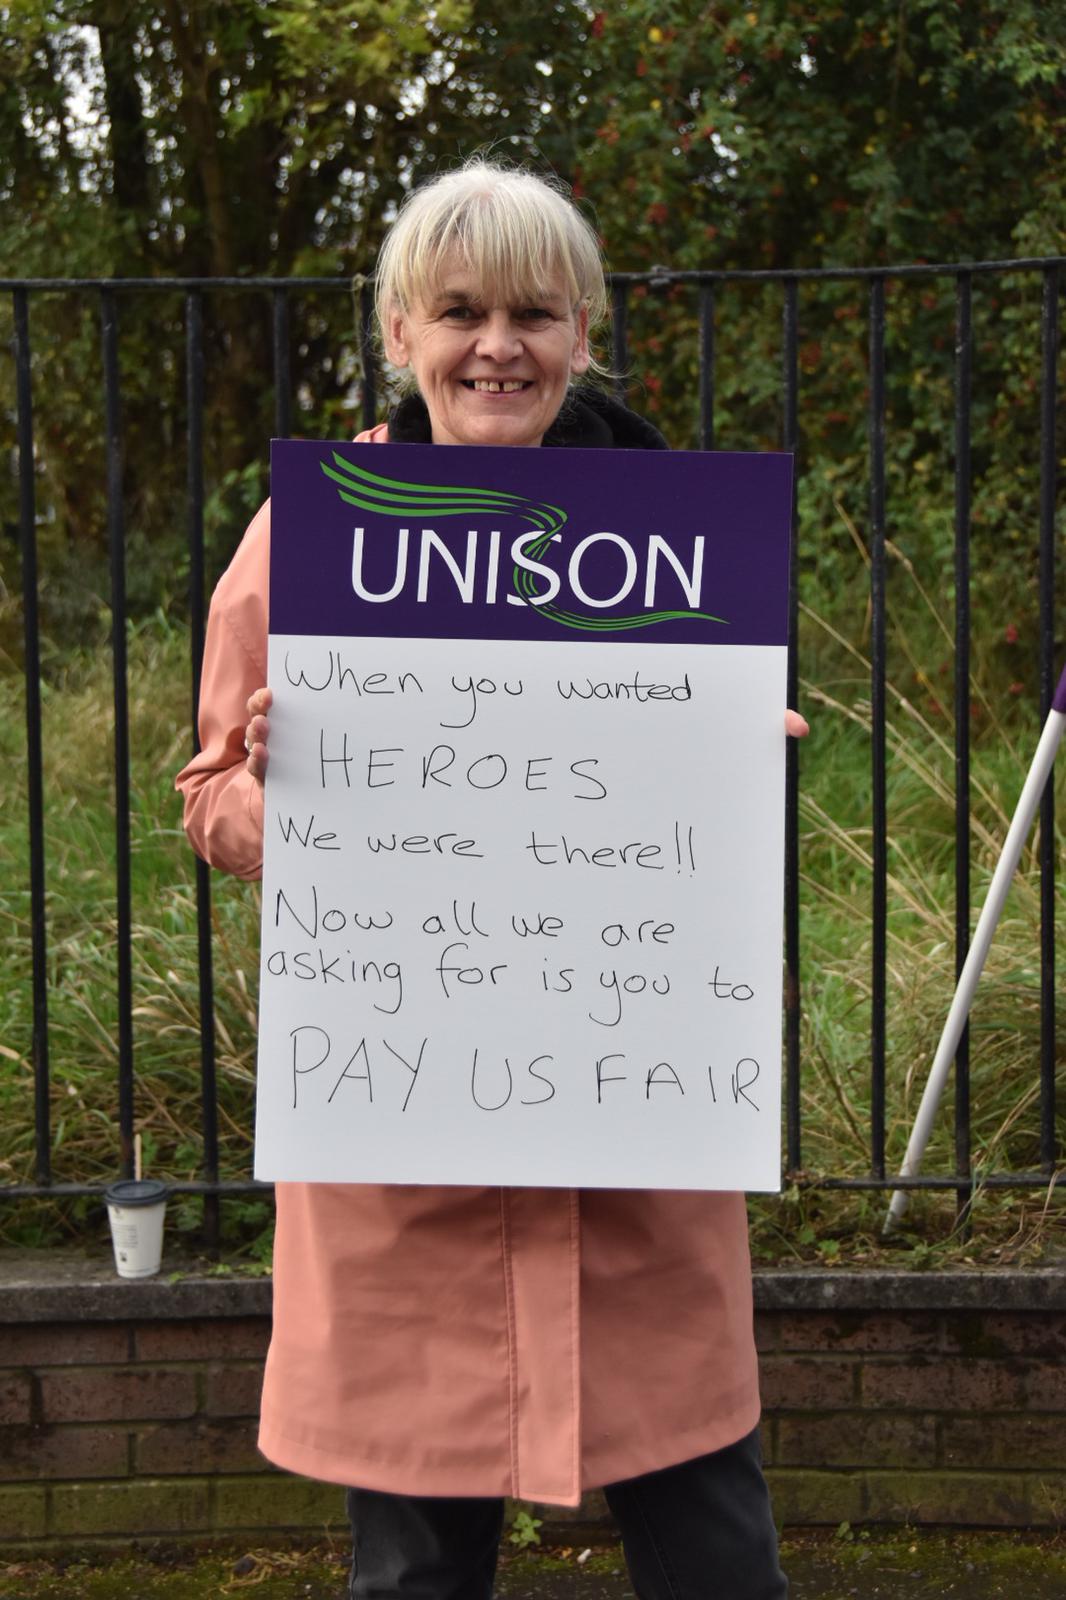 UNISON
When you wanted
HEROES
We were there!!
Now all we are
asking for is you to
PAY US FAIR